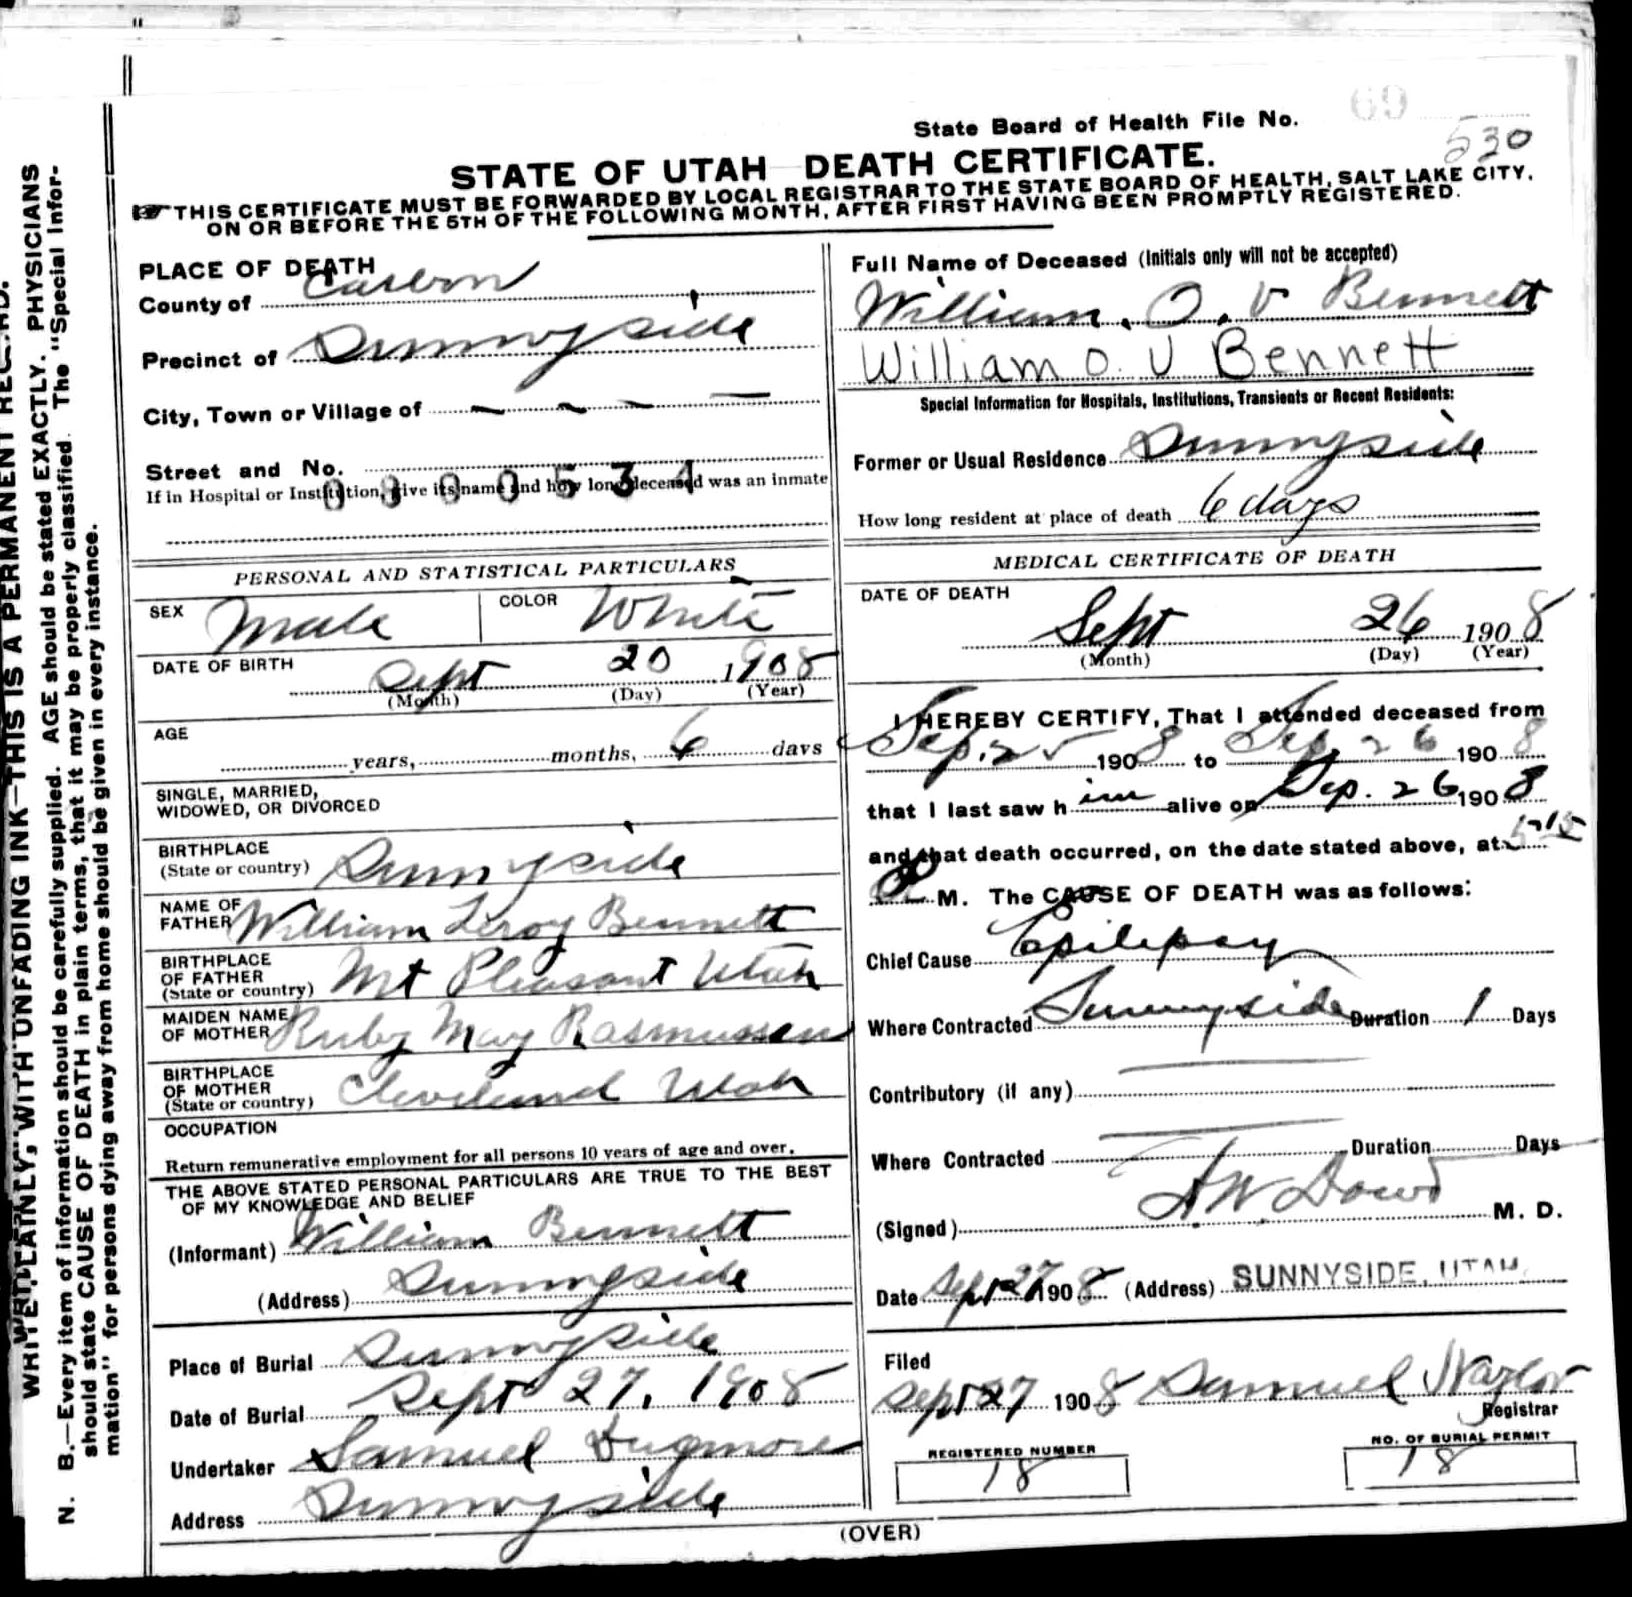 State Board of Health File No.
69
530
STATE OF UTAH DEATH CERTIFICATE.
THIS CERTIFICATE MUST BE FORWARDED BY LOCAL REGISTRAR TO THE STATE BOARD OF HEALTH, SALT LAKE CITY,
ON OR BEFORE THE 5TH OF THE FOLLOWING MONTH, AFTER FIRST HAVING BEEN PROMPTLY REGISTERED.
PLACE OF DEATH
County of Carbon
Precinct of Sunnyside
City, Town or Village of
Street and No.
If in Hospital or Institution, give its name and how long deceased was an inmate
Full Name of Deceased (Initials only will not be accepted)
William. O. V Bennett
William O. V Bennett
Special Information for Hospitals, Institutions, Transients or Recent Residents:
Former or Usual Residence Sunnyside
How long resident at place of death 6 days
PERSONAL AND STATISTICAL PARTICULARS
SEX Male COLOR White
DATE OF BIRTH Sept 20 1908
(Month) (Day) (Year)
AGE
years, months, 6 days
SINGLE, MARRIED,
WIDOWED, OR DIVORCED
BIRTHPLACE
(State or country) Sunnyside
NAME OF
FATHER William Leroy Bennett
BIRTHPLACE
OF FATHER
(State or country) Mt Pleasant Utah
MAIDEN NAME
OF MOTHER Ruby May Rasmussen
BIRTHPLACE
OF MOTHER
(State or country) Cleveland Utah
OCCUPATION
Return remunerative employment for all persons 10 years of age and over.
THE ABOVE STATED PERSONAL PARTICULARS ARE TRUE TO THE BEST
OF MY KNOWLEDGE AND BELIEF
(Informant) William Bennett
(Address) Sunnyside
Place of Burial Sunnyside
Date of Burial Sept 27, 1908
Undertaker Samuel Dugmore
Address Sunnyside
MEDICAL CERTIFICATE OF DEATH
DATE OF DEATH
Sept 26 1908
(Month) (Day) (Year)
I HEREBY CERTIFY, That I attended deceased from
Sep. 25 1908 to Sep. 26 1908
that I last saw him alive on Sep. 26 1908
and that death occurred, on the date stated above, at 5 15
M. The CAUSE OF DEATH was as follows:
Chief Cause Epilepsy
Where Contracted Sunnyside Duration 1 Days
Contributory (if any)
Where Contracted Duration Days
(Signed) A W Dowd M. D.
Date Sept 27 1908 (Address) SUNNYSIDE, UTAH.
Filed
Sept 27 1908 Samuel Naylor
Registrar
REGISTERED NUMBER
18
NO. OF BURIAL PERMIT
18
(OVER)
WRITE PLAINLY, WITH UNFADING INK—THIS IS A PERMANENT RECORD.
N. B.—Every item of information should be carefully supplied. AGE should be stated EXACTLY. PHYSICIANS
should state CAUSE OF DEATH in plain terms, that it may be properly classified. The "Special Infor-
mation" for persons dying away from home should be given in every instance.